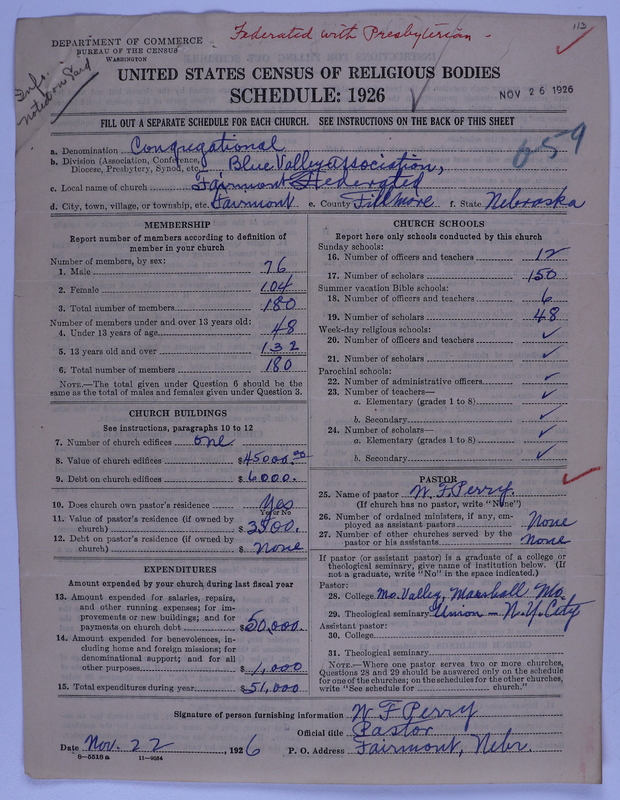 113
Federated with Presbyterian -
DEPARTMENT OF COMMERCE
BUREAU OF THE CENSUS
WASHINGTON
Info.
Noted on Card
UNITED STATES CENSUS OF RELIGIOUS BODIES
SCHEDULE: 1926
NOV 26 1926
FILL OUT A SEPARATE SCHEDULE FOR EACH CHURCH. SEE INSTRUCTIONS ON THE BACK OF THIS SHEET
659
a. Denomination Congregational
b. Division (Association, Conference, Diocese, Presbytery, Synod, etc.) Blue Valley Association,
c. Local name of church Fairmont Federated
d. City, town, village, or township, etc. Fairmont e. County Fillmore f. State Nebraska
MEMBERSHIP
Report number of members according to definition of
member in your church
Number of members, by sex:
1. Male 76
2. Female 104
3. Total number of members 180
Number of members under and over 13 years old:
4. Under 13 years of age 48
5. 13 years old and over 132
6. Total number of members 180
NOTE.—The total given under Question 6 should be
same as the total of males and females given under Question 3.
CHURCH BUILDINGS
See instructions, paragraphs 10 to 12
7. Number of church edifices one
8. Value of church edifices $45000.00
9. Debt on church edifices $6000.
10. Does church own pastor's residence Yes
Yes or No
11. Value of pastor's residence (if owned by
church) $3500.
12. Debt on pastor's residence (if owned by
church) $ None
EXPENDITURES
Amount expended by your church during last fiscal year
13. Amount expended for salaries, repairs,
and other running expenses; for im-
provements or new buildings; and for
payments on church debt $50,000.
14. Amount expended for benevolences, in-
cluding home and foreign missions; for
denominational support; and for all
other purposes $1,000
15. Total expenditures during year $51,000
CHURCH SCHOOLS
Report here only schools conducted by this church
Sunday schools:
16. Number of officers and teachers 12
17. Number of scholars 150
Summer vacation Bible schools:
18. Number of officers and teachers 6
19. Number of scholars 48
Week-day religious schools:
20. Number of officers and teachers ✓
21. Number of scholars ✓
Parochial schools:
22. Number of administrative officers ✓
23. Number of teachers—
a. Elementary (grades 1 to 8) ✓
b. Secondary ✓
24. Number of scholars—
a. Elementary (grades 1 to 8) ✓
b. Secondary ✓
PASTOR
25. Name of pastor W. F. Perry.
(If church has no pastor, write "None")
26. Number of ordained ministers, if any, em-
ployed as assistant pastors None
27. Number of other churches served by the
pastor or his assistants none
If pastor (or assistant pastor) is a graduate of a college or
theological seminary, give name of institution below. (If
not a graduate, write "No" in the space indicated.)
Pastor:
28. College Mo. Valley, Marshall Mo.
29. Theological seminary Union - N.Y. City
Assistant pastor:
30. College
31. Theological seminary
NOTE.—Where one pastor serves two or more churches,
Questions 28 and 29 should be answered only on the schedule
for one of the churches; on the schedules for the other churches,
write "See schedule for church."
Signature of person furnishing information W F Perry
Official title Pastor
Date Nov. 22, 1926 P. O. Address Fairmont, Nebr.
8-5518 a 11-9054